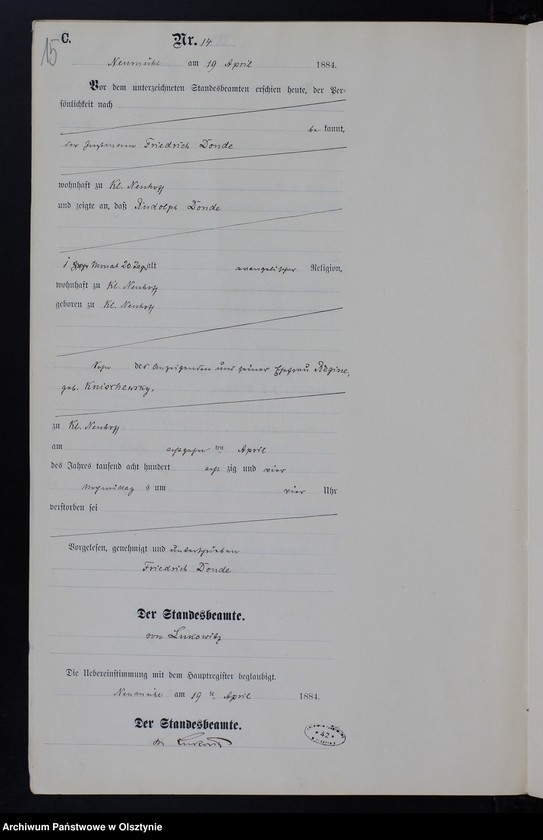 15
C.
Nr. 14
Neumühl am 19 April 1884.
Vor dem unterzeichneten Standesbeamten erschien heute, der Per-
sönlichkeit nach
be kannt,
der Friedrich Donde
wohnhaft zu Kl. Neuhoff
und zeigte an, daß Rudolph Donde
1 Monat 20 Tage alt evangelischer Religion,
wohnhaft zu Kl. Neuhoff
geboren zu Kl. Neuhoff
Sohn des Anzeigenden und seiner Ehefrau Regine,
geb. Knischewsky.
zu Kl. Neuhoff
am achtzehnten April
des Jahres tausend acht hundert acht zig und vier
Vormittags um vier Uhr
verstorben sei
Vorgelesen, genehmigt und unterschrieben
Friedrich Donde
Der Standesbeamte.
von Lukowitz
Die Uebereinstimmung mit dem Hauptregister beglaubigt.
Neumühl am 19 ten April 1884.
Der Standesbeamte.
von Lukowitz
42
Archiwum Państwowe w Olsztynie